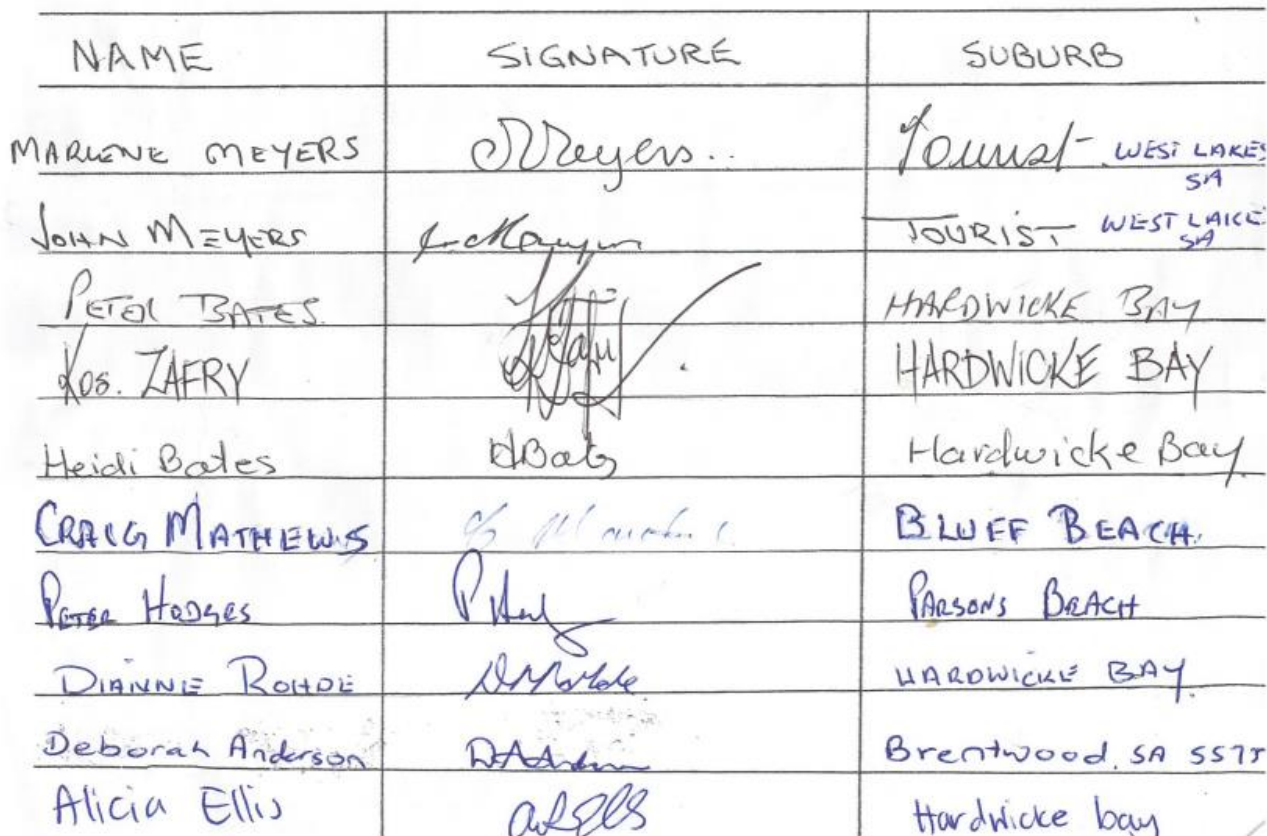 NAME SIGNATURE SUBURB
MARLENE MEYERS Meyers.. Tourist WEST LAKES
SA
JOHN MEYERS TOURIST WEST LAKE
SA
PETER BATES. HARDWICKE BAY
Kos. ZAFRY HARDWICKE BAY
Heidi Bates HBates Hardwicke Bay
CRAIG MATHEWS BLUFF BEACH.
PETER HODGES PARSONS BEACH
DIANNE ROHDE HARDWICKE BAY
Deborah Anderson Brentwood. SA 5575
Alicia Ellis Hardwicke bay